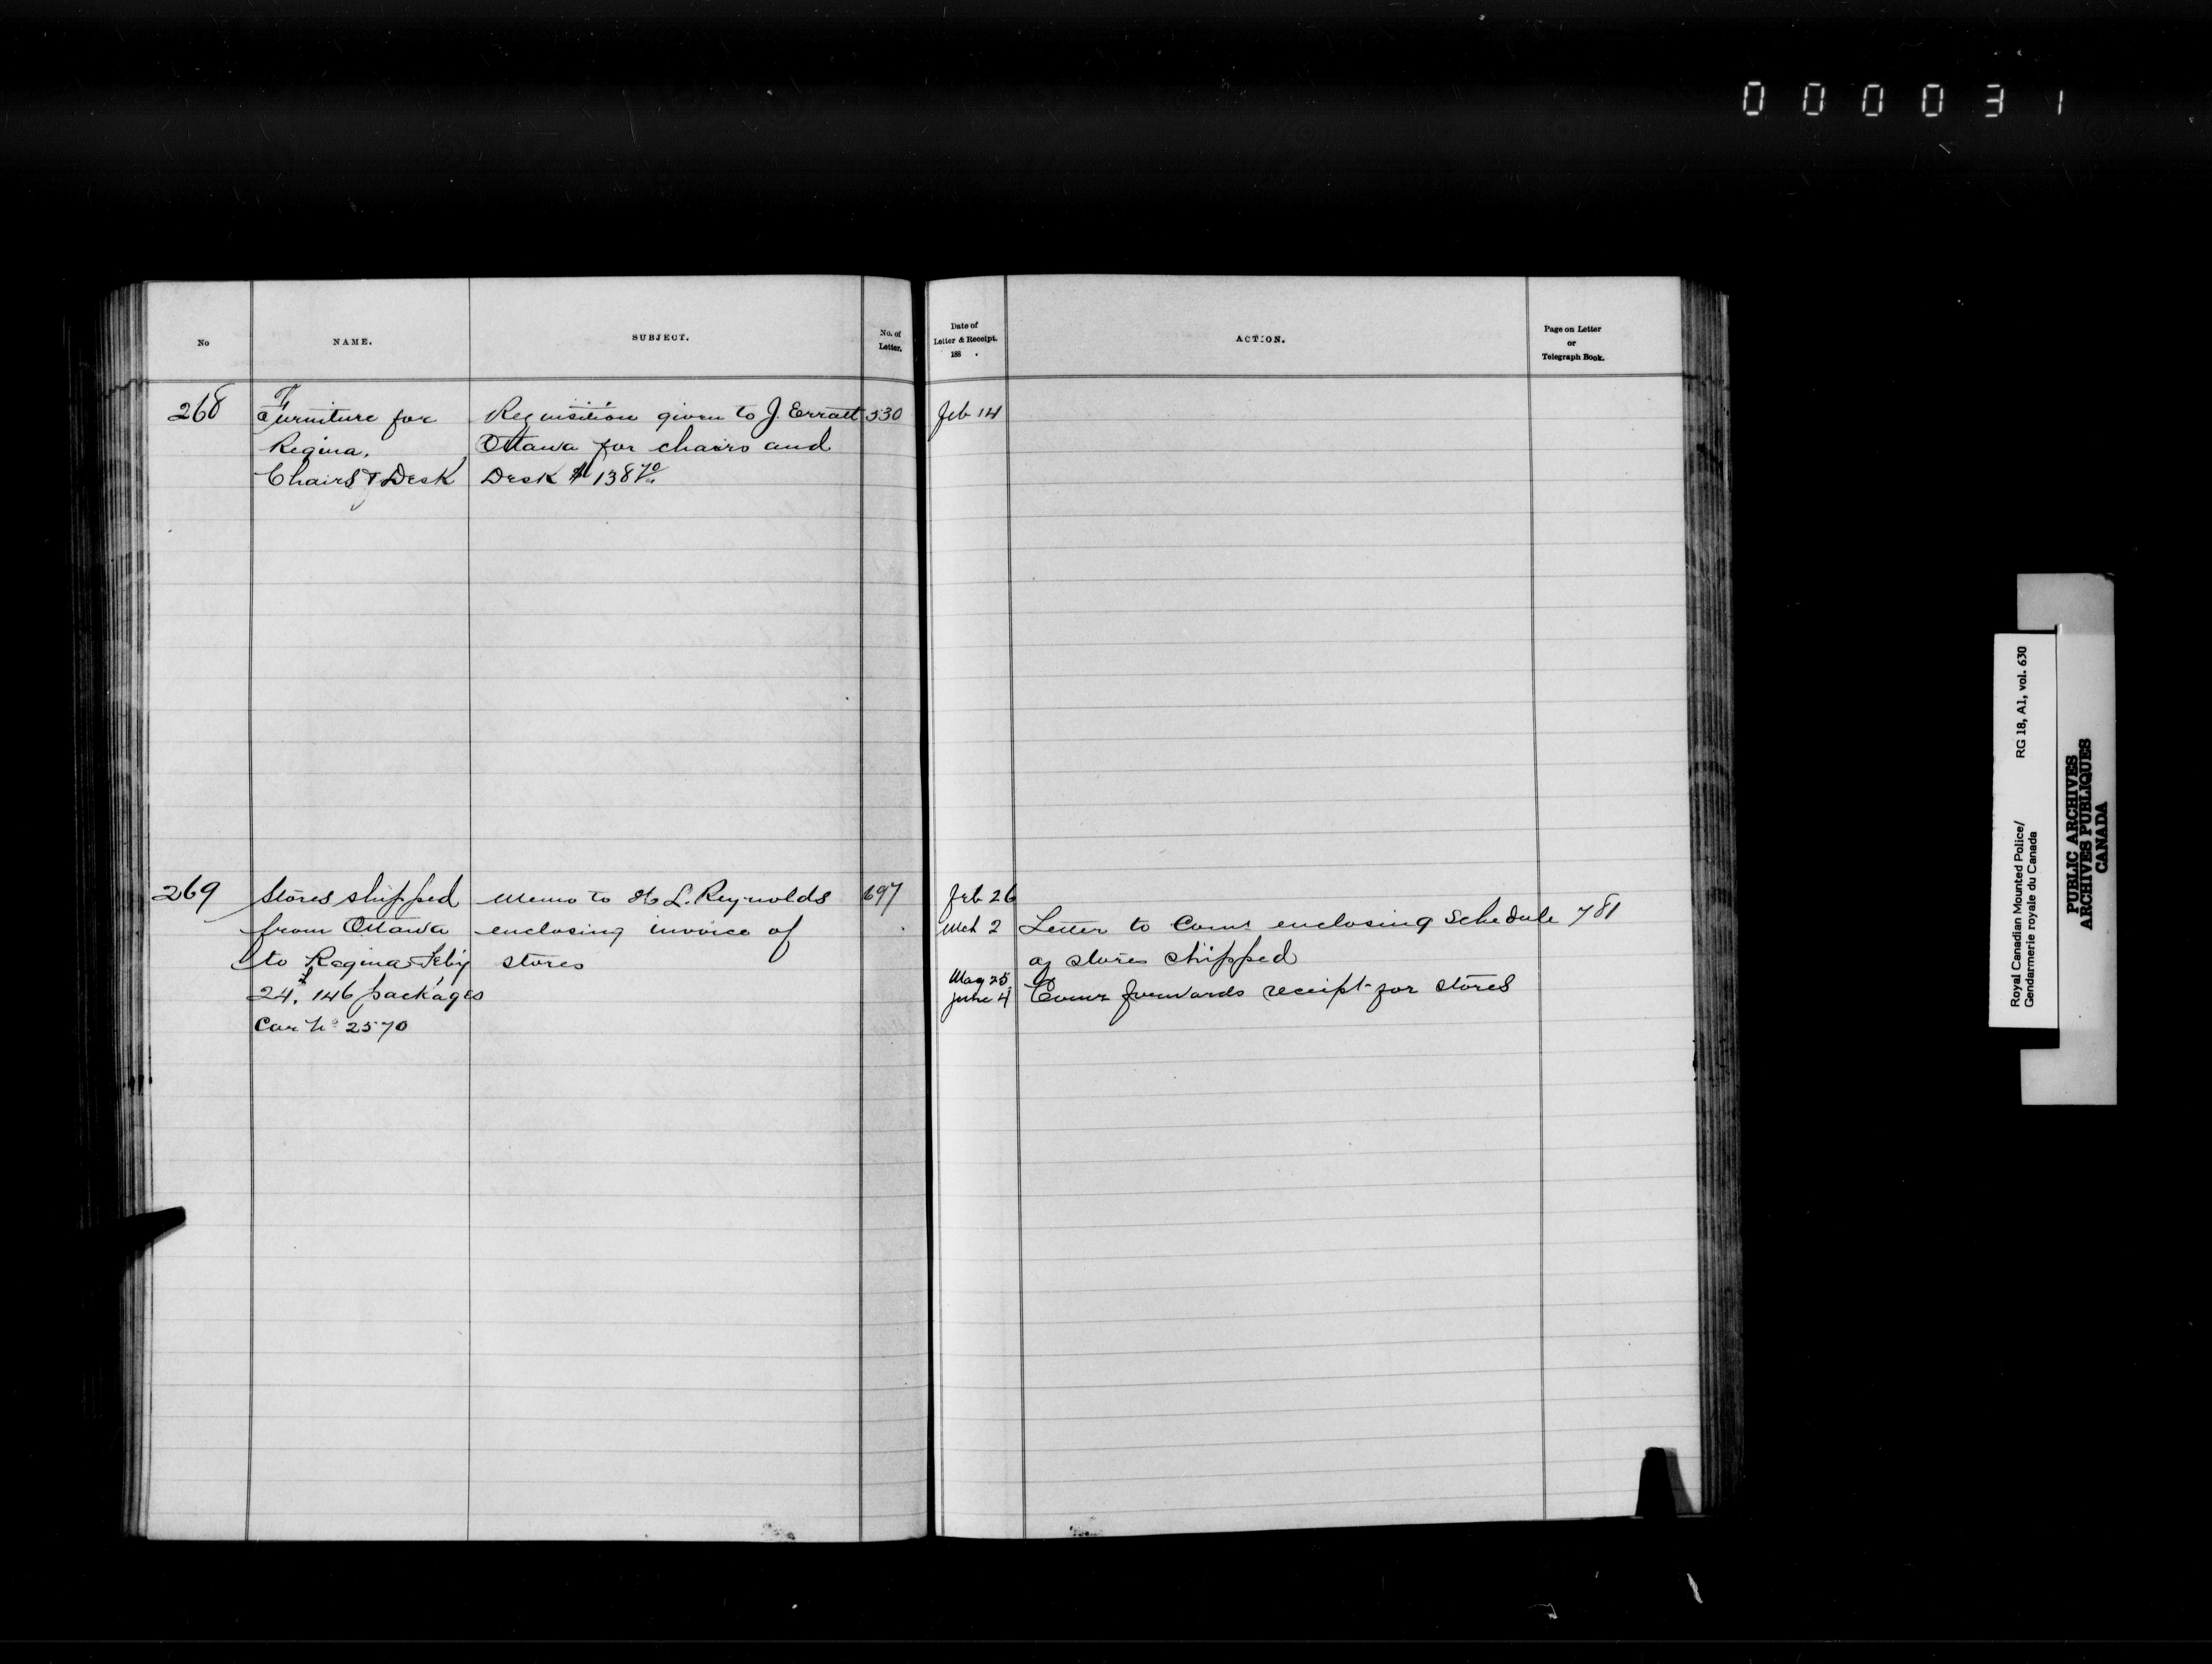 0 0 0 0 3 1
No
NAME.
SUBJECT.
No. of
Letter.
Date of
Letter & Receipt.
188 .
ACTION.
Page on Letter
or
Telegraph Book.
268
Furniture for
Regina.
Chairs & Desk
Requisition given to J. Erratt
Ottawa for chairs and
Desk $138 70/
530
Feb 14
269
Stores shipped
from Ottawa
to Regina Feby
24. 146 packages
Car No 2570
Memo to H L. Reynolds
enclosing invoice of
stores
697
Feb 26
Mch 2
Letter to Comr enclosing Schedule
781
of stores shipped
May 25
June 4
Comr forwards receipt for stores
Royal Canadian Mounted Police/
Gendarmerie royale du Canada
RG 18, A1, vol. 630
PUBLIC ARCHIVES
ARCHIVES PUBLIQUES
CANADA